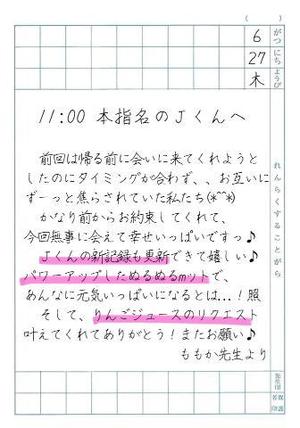 (　　)
6 がつ
27 にち
木 ようび
れんらくすることがら
11:00 本指名のJくんへ
前回は帰る前に会いに来てくれようと
したのにタイミングが合わず、、お互いに
ずーっと焦らされていた私たち(*^^*)
かなり前からお約束してくれて、
今回無事に会えて幸せいっぱいですっ♪
Jくんの新記録も更新できて嬉しい♪
パワーアップしたぬるぬるmットで、
あんなに元気いっぱいになるとは...！照
そして、りんごジュースのリクエスト
叶えてくれてありがとう！またお願い♪
ももか先生より